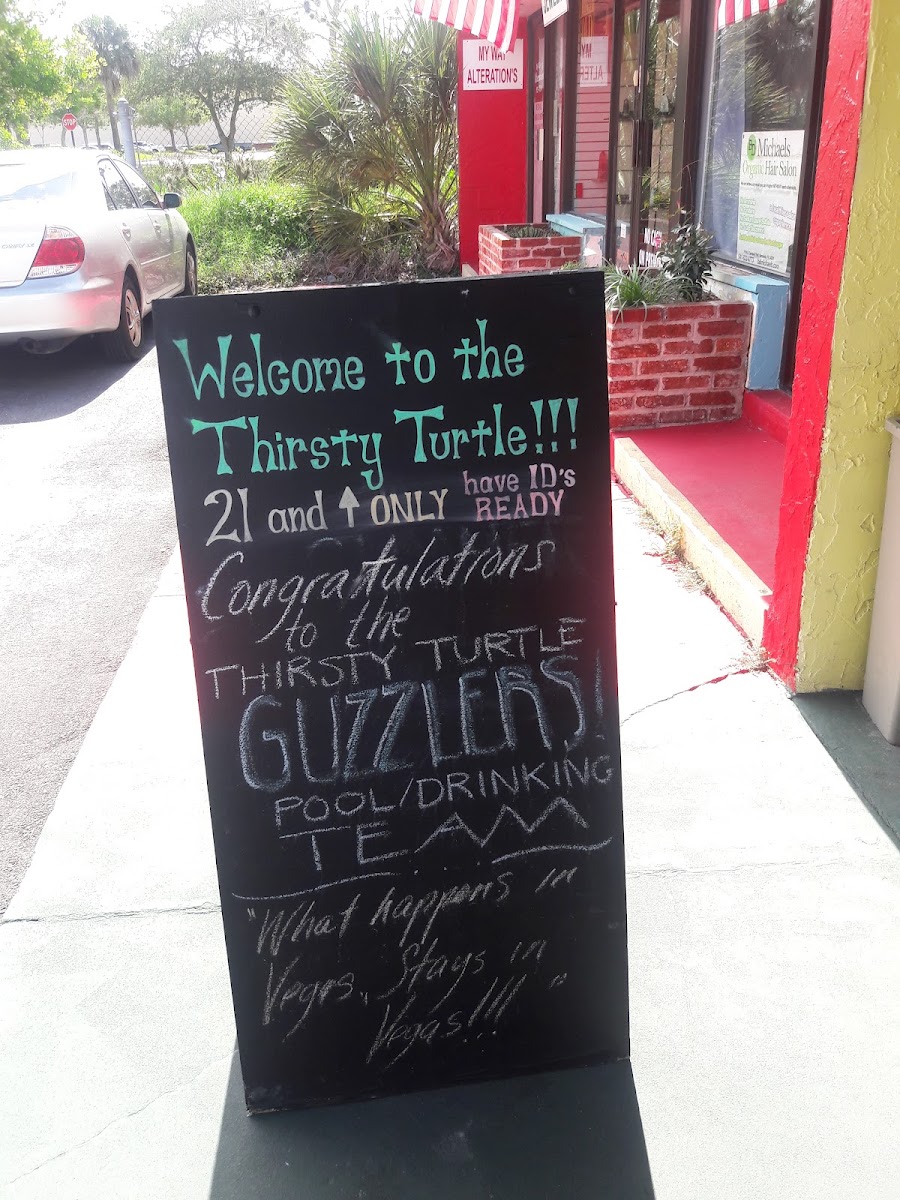 MY WAY
ALTERATION'S
STOP
Michaels
Organic Hair Salon
Welcome to the
Thirsty Turtle!!!
21 and ↑ ONLY have ID's READY
Congratulations
to the
THIRSTY TURTLE
GUZZLERS!
POOL/DRINKING
TEAM
"What happens in
Vegas, Stays in
Vegas!!!"